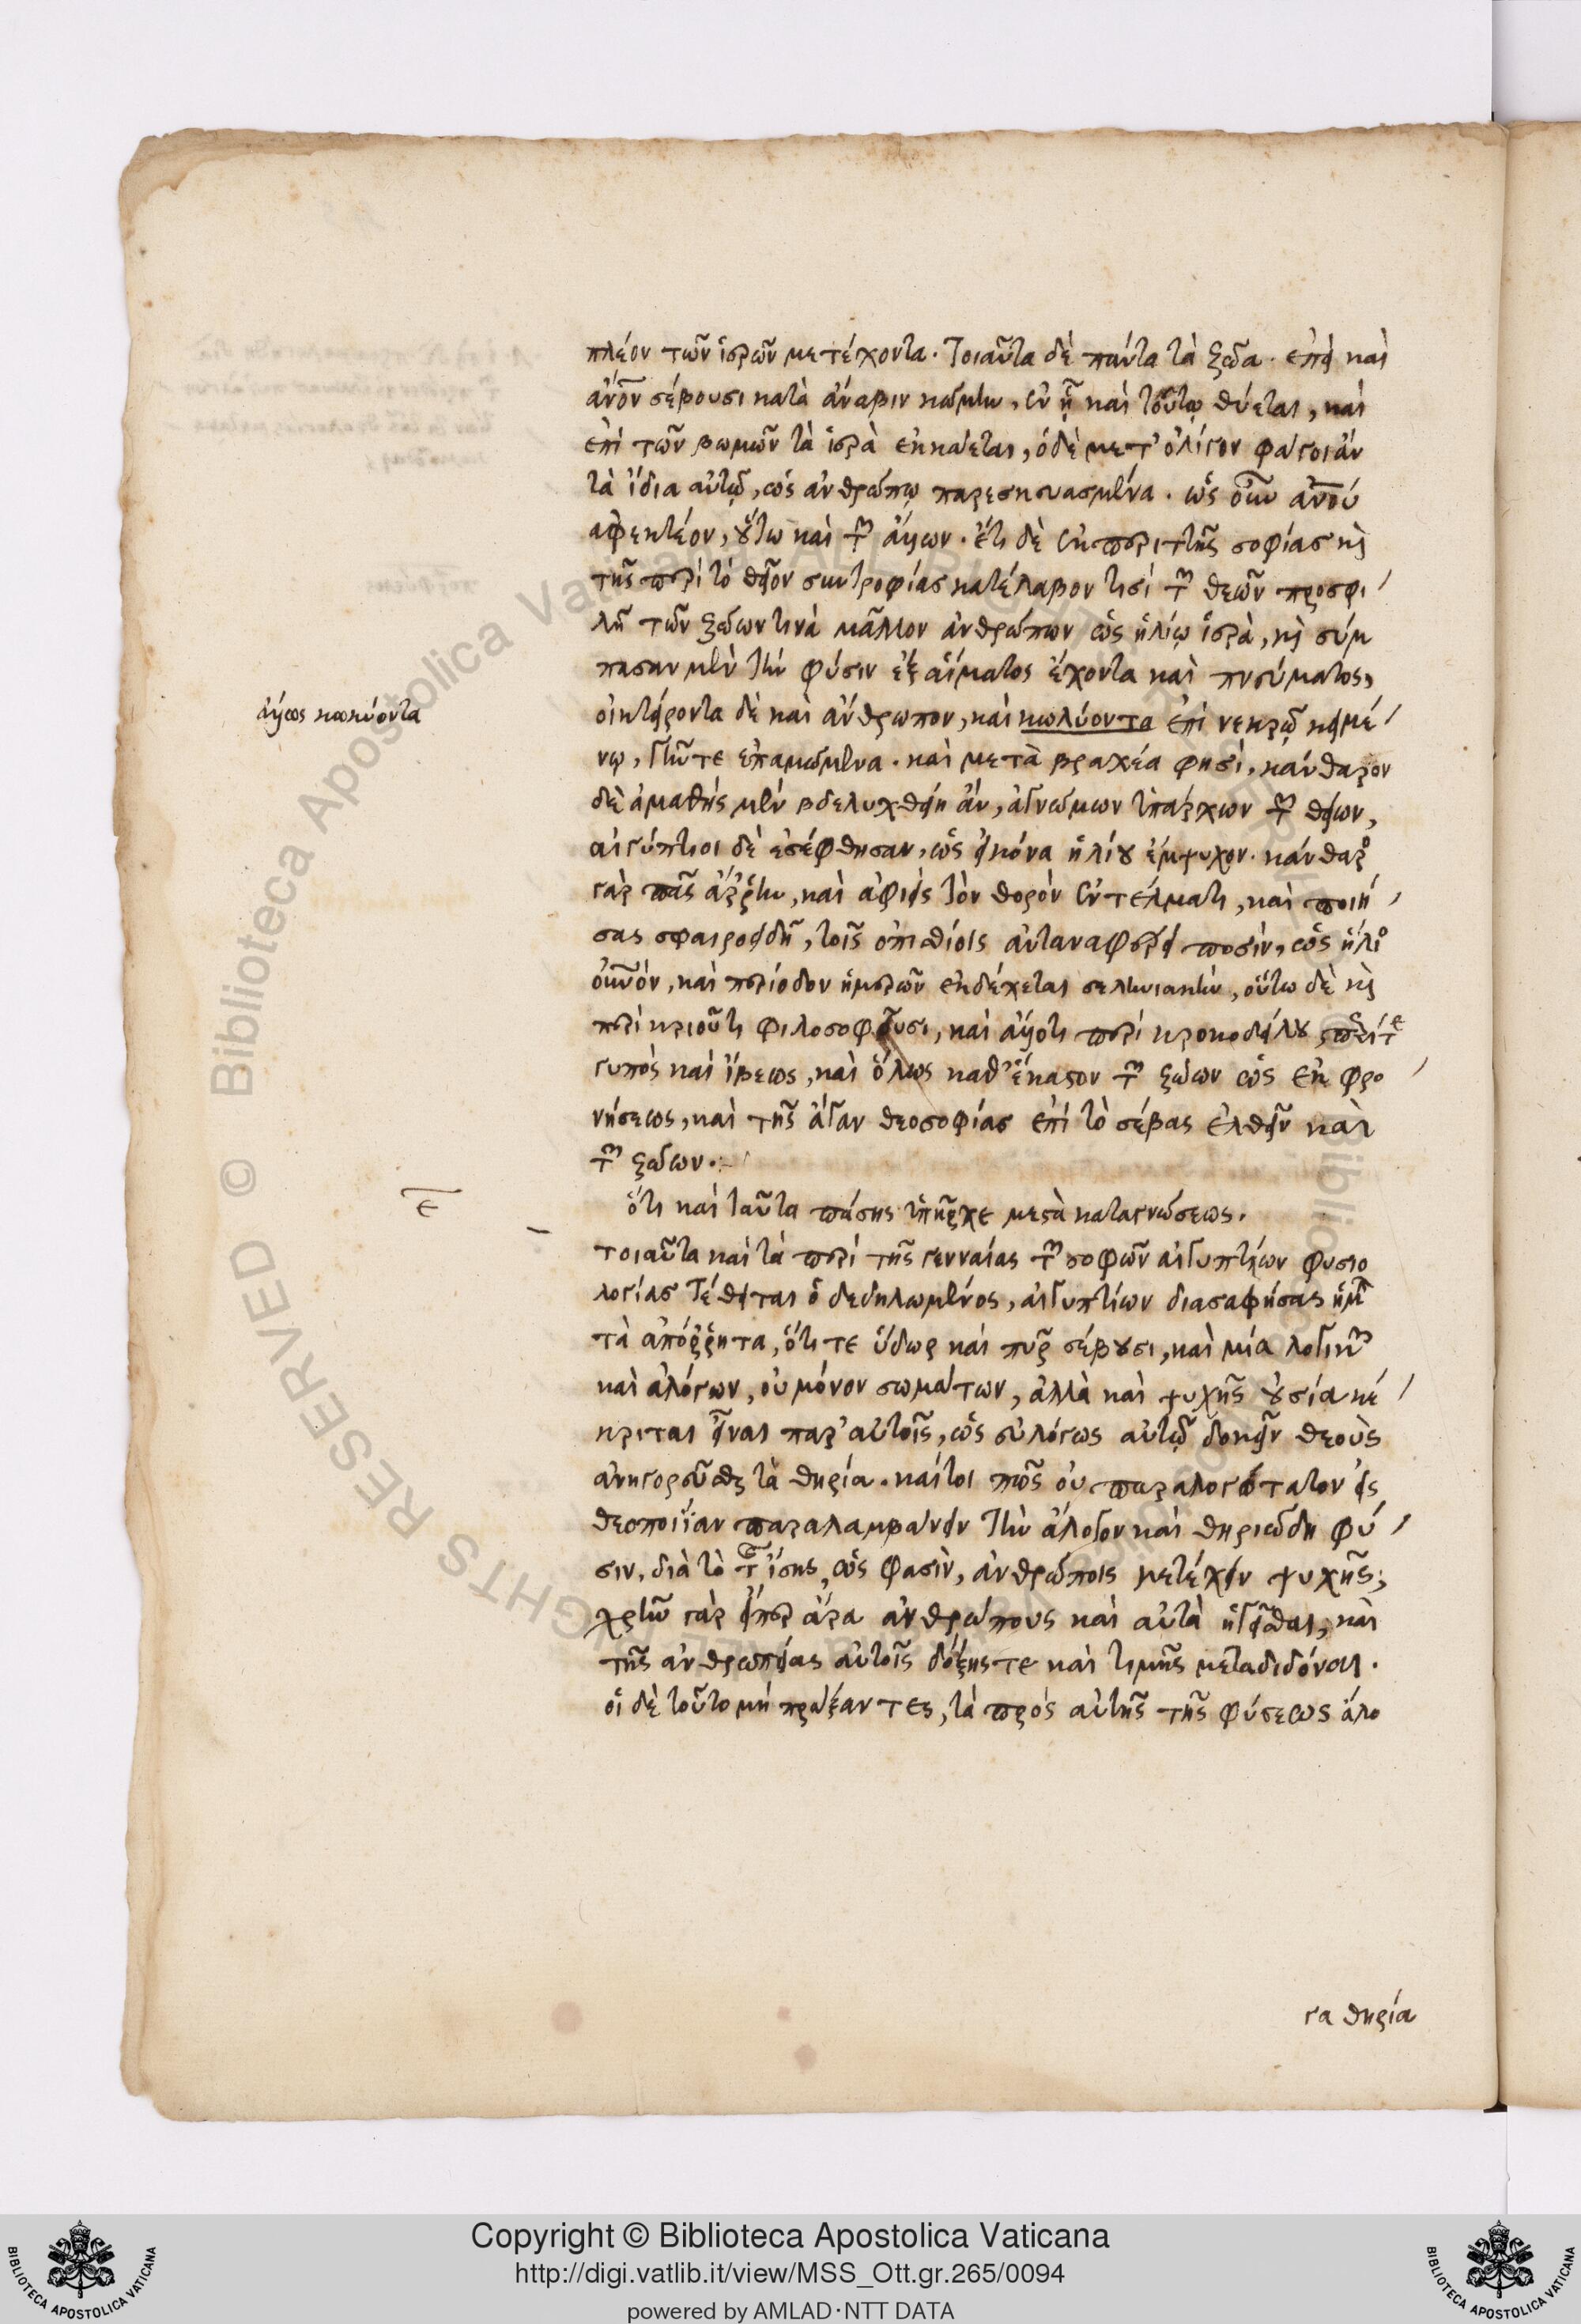 πλέον τῶν ἱερῶν μετέχοντα. τοιαῦτα δὲ πάντα τὰ ζῷα. ἐπεὶ καὶ
ἄνον σέβουσι κατὰ ἄναβιν κώμην, ἐν ᾗ καὶ τούτῳ θύεται, καὶ
ἐπὶ τῶν βωμῶν τὰ ἱερὰ ἐκκαίεται, ὁ δὲ μετ' ὀλίγον φάγοι ἂν
τὰ ἴδια αὐτῷ, ὡς ἀνθρώπῳ παρεσκευασμένα. ὡς οὖν ἀνου
ἀφεκτέον, οὕτω καὶ τῶν ἄλλων. ἔτι δὲ ἐκ περιττῆς σοφίας καὶ
τῆς περὶ τὸ θεῖον συντροφίας κατέλαβον τισὶ τῶν θεῶν προσφι
λῆ τῶν ζώων τινὰ μᾶλλον ἀνθρώπων ὡς ἡλίῳ ἱερὰ, καὶ σύμ
πασαν μὲν τὴν φύσιν ἐξ αἵματος ἔχοντα καὶ πνεύματος,
οἰκτείροντα δὲ καὶ ἄνθρωπον, καὶ κωλύοντα ἐπὶ νεκρῷ κειμέ
ἄλλως κωκύοντα
νῳ, γῆν τε ἐπαμώμενα. καὶ μετὰ βραχέα φησὶ, κάνθαρον
δὲ ἀμαθὴς μὲν βδελυχθείη ἂν, ἀγνώμων ὑπάρχων τῶν θείων,
αἰγύπτιοι δὲ ἐσέφθησαν, ὡς εἰκόνα ἡλίου ἔμψυχον. κάνθαρος
γὰρ πᾶς ἄρρην, καὶ ἀφιεὶς τὸν θορὸν ἐν τέλματι, καὶ ποιή
σας σφαιροειδῆ, τοῖς ὀπισθίοις ἀνταναφέρει ποσὶν, ὡς ἥλιος
οὐνὸν, καὶ περίοδον ἡμερῶν ἐκδέχεται σεληνιακὴν, οὕτω δὲ καὶ
περὶ κριοῦ τι φιλοσοφοῦσι, καὶ ἄλλο τι περὶ κροκοδείλου, περί τε
γυπὸς καὶ ἴβεως, καὶ ὅλως καθ' ἕκαστον τῶν ζώων ὡς ἐκ φρο
νήσεως, καὶ τῆς ἄγαν θεοσοφίας ἐπὶ τὸ σέβας ἐλθεῖν καὶ
τῶν ζώων.
ε
ὅτι καὶ ταῦτα πάσης ὑπῆρχε μεστὰ καταγνώσεως.
τοιαῦτα καὶ τὰ περὶ τῆς γενναίας τῶν σοφῶν αἰγυπτίων φυσιο
λογίας τέθειται ὁ δεδηλωμένος, αἰγυπτίων διασαφήσας ἡμῖν
τὰ ἀπόρρητα, ὅτι τε ὕδωρ καὶ πῦρ σέβουσι, καὶ μία λογικῶν
καὶ ἀλόγων, οὐ μόνον σωμάτων, ἀλλὰ καὶ ψυχῆς οὐσία κέ
κριται εἶναι παρ' αὐτοῖς, ὡς εὐλόγως αὐτῷ δοκεῖν θεοὺς
ἀνηγορεῦσθαι τὰ θηρία. καίτοι πῶς οὐ παραλογώτατον εἰς
θεοποιΐαν παραλαμβάνειν τὴν ἄλογον καὶ θηριώδη φύ
σιν, διὰ τὸ τῆς ἴσης, ὡς φασὶν, ἀνθρώποις μετέχειν ψυχῆς;
χρῆν γὰρ εἴπερ ἄρα ἀνθρώπους καὶ αὐτὰ ἡγεῖσθαι, καὶ
τῆς ἀνθρωπείας αὐτοῖς δόξης τε καὶ τιμῆς μεταδιδόναι.
οἱ δὲ τοῦτο μὴ πράξαντες, τὰ πρὸς αὐτῆς τῆς φύσεως ἄλο
γα θηρία
© Biblioteca Apostolica Vaticana ALL RIGHTS RESERVED
Copyright © Biblioteca Apostolica Vaticana
http://digi.vatlib.it/view/MSS_Ott.gr.265/0094
powered by AMLAD·NTT DATA
BIBLIOTECA APOSTOLICA VATICANA
BIBLIOTECA APOSTOLICA VATICANA